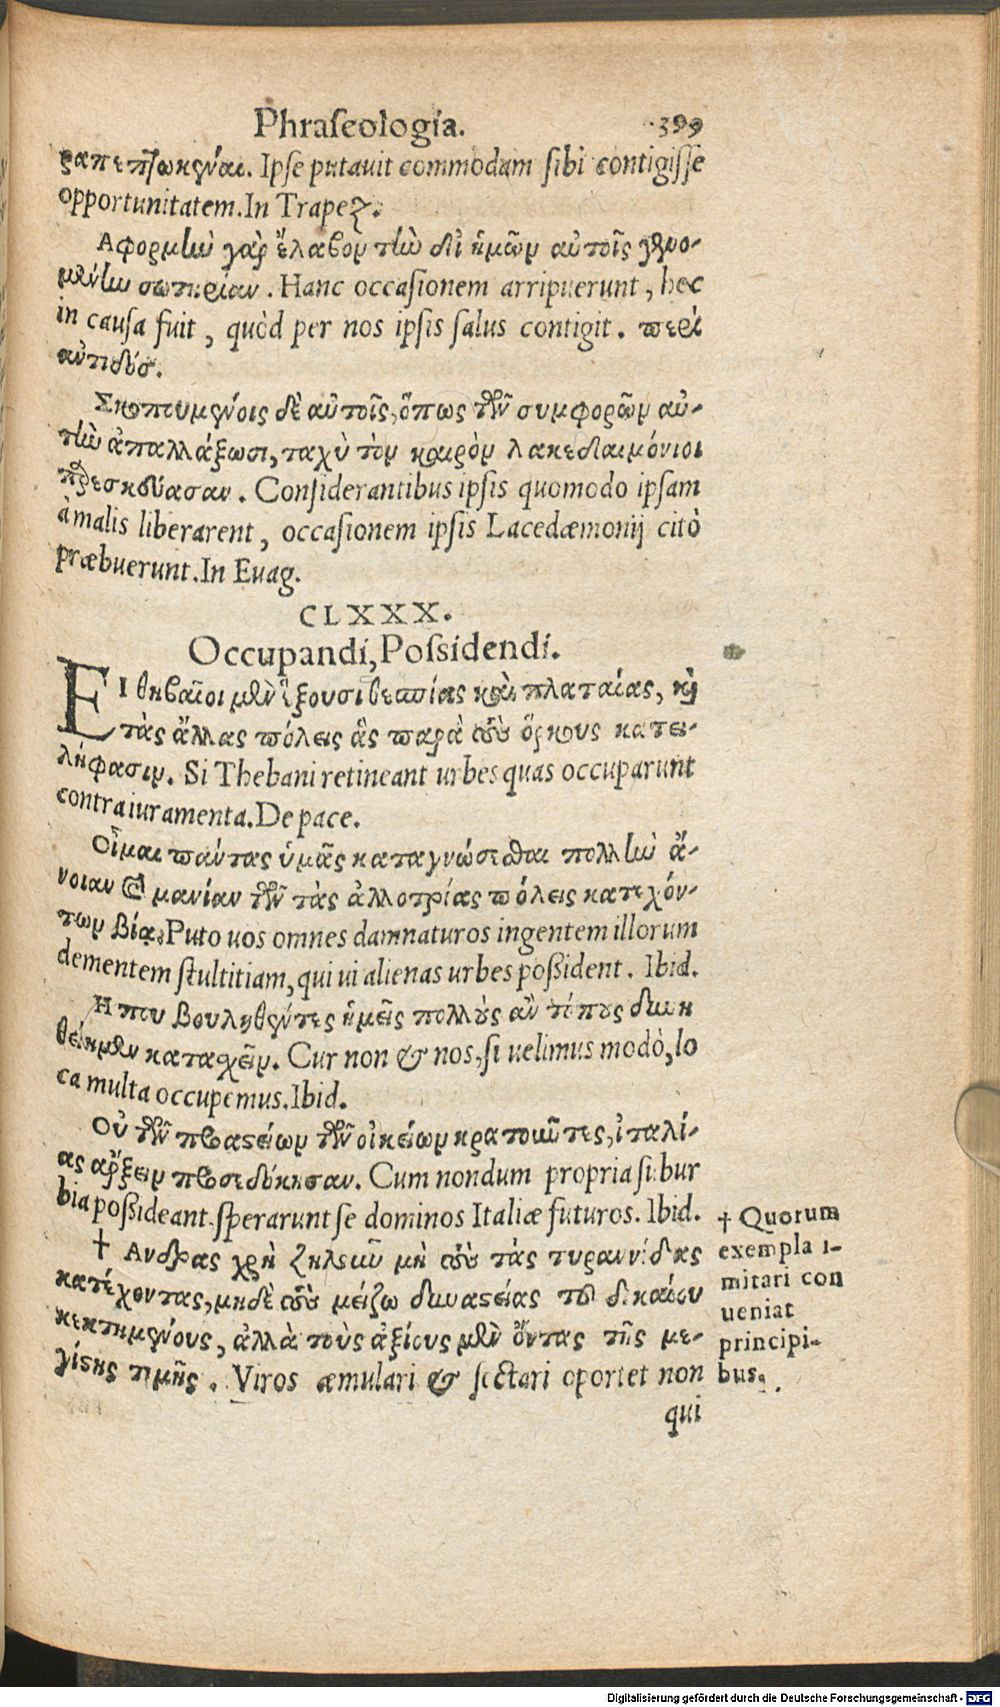 Phraſeologia. 399
ραπεπτωκέναι. Ipſe putauit commodam ſibi contigiſſe
opportunitatem. In Trapez.
Αφορμὴν γὰρ ἔλαβον τὴν δι' ἡμῶν αὐτοῖς γενο-
μένην σωτηρίαν. Hanc occaſionem arripuerunt, hæc
in cauſa fuit, quòd per nos ipſis ſalus contigit. περὶ
αὐτιδόσ.
Σκοπουμένοις δὲ αὐτοῖς, ὅπως τῶν συμφορῶν αὐ-
τὴν ἀπαλλάξωσι, ταχὺ τὸν καιρὸν λακεδαιμόνιοι
παρεσκεύασαν. Conſiderantibus ipſis quomodo ipſam
à malis liberarent, occaſionem ipſis Lacedæmonij citò
præbuerunt. In Euag.
CLXXX.
Occupandi, Poſsidendi.
ΕΙ θηβαῖοι μὲν ἕξουσι θεσπίας καὶ πλαταίας, καὶ
τὰς ἄλλας πόλεις ἃς παρὰ τοὺς ὅρκους κατει-
λήφασιν. Si Thebani retineant urbes quas occuparunt
contra iuramenta. De pace.
Οἶμαι πάντας ὑμᾶς καταγνώσεσθαι πολλὴν ἄ-
νοιαν καὶ μανίαν τῶν τὰς ἀλλοτρίας πόλεις κατεχόν-
των βίᾳ. Puto uos omnes damnaturos ingentem illorum
dementem ſtultitiam, qui ui alienas urbes poßident. Ibid.
Η που βουληθέντες ἡμεῖς πολλοὺς ἂν τόπους δυνη
θείημεν κατασχεῖν. Cur non & nos, ſi uelimus modò, lo
ca multa occupemus. Ibid.
Οὐ τῶν προαστείων τῶν οἰκείων κρατοῦντες, ἰταλί-
ας ἄρξειν προσεδόκησαν. Cum nondum propria ſubur
bia poßideant ſperarunt ſe dominos Italiæ futuros. Ibid.
† Ανδρας χρὴ ζηλοῦν μὴ τοὺς τὰς τυραννίδας
κατέχοντας, μηδὲ τοὺς μείζω δυναστείας τοῦ δικαίου
κεκτημένους, ἀλλὰ τοὺς ἀξίους μὲν ὄντας τῆς με-
γίστης τιμῆς. Viros æmulari & ſectari oportet non
qui
† Quorum
exempla i-
mitari con
ueniat
principi-
bus.
Digitalisierung gefördert durch die Deutsche Forschungsgemeinschaft - DFG